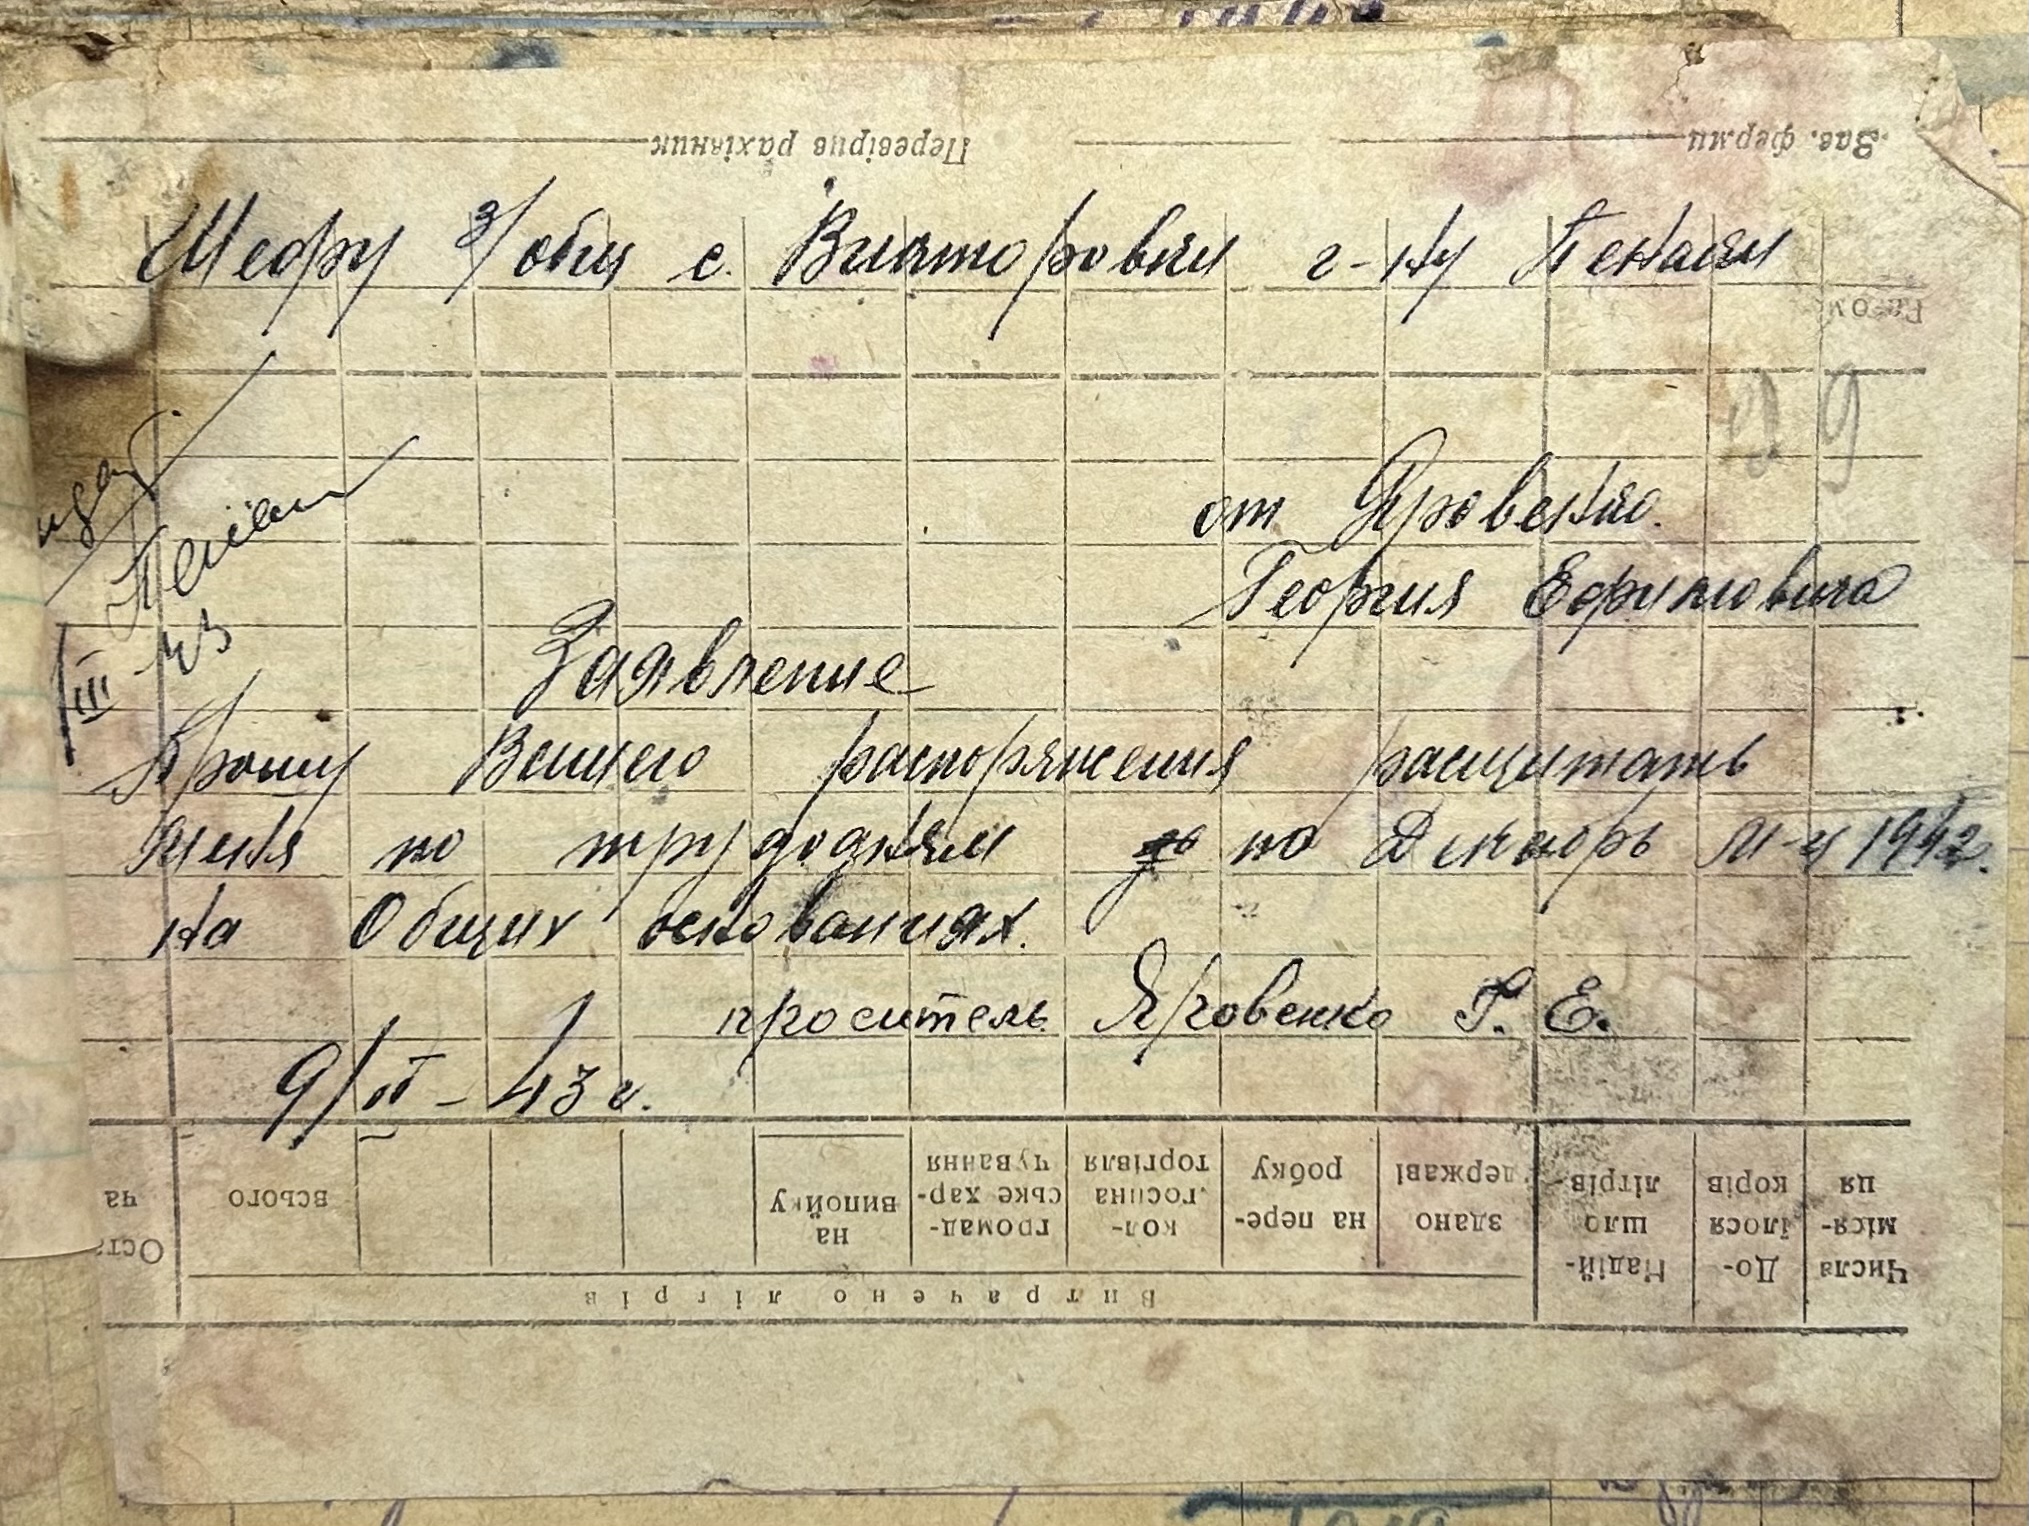 Шефу з/общ с. Викторовки г-ну
от Яровенко
Георгия Ефимовича
Заявление
Прошу Вашего распоряжения расщитать
меня по трудодням по Декабрь м-ц 1942.
на Общих основаниях.
проситель Яровенко Г. Е.
9/II – 43 г.
III 43
29
Зав. ферми Перевірив рахівник
Разом
Числа міся- ця
До- їлося корів
Надій- шло літрів
Витрачено літрів
здано державі
на пере- робку
кол- госпна торгівля
громад- ське хар- чування
на випойку
всього